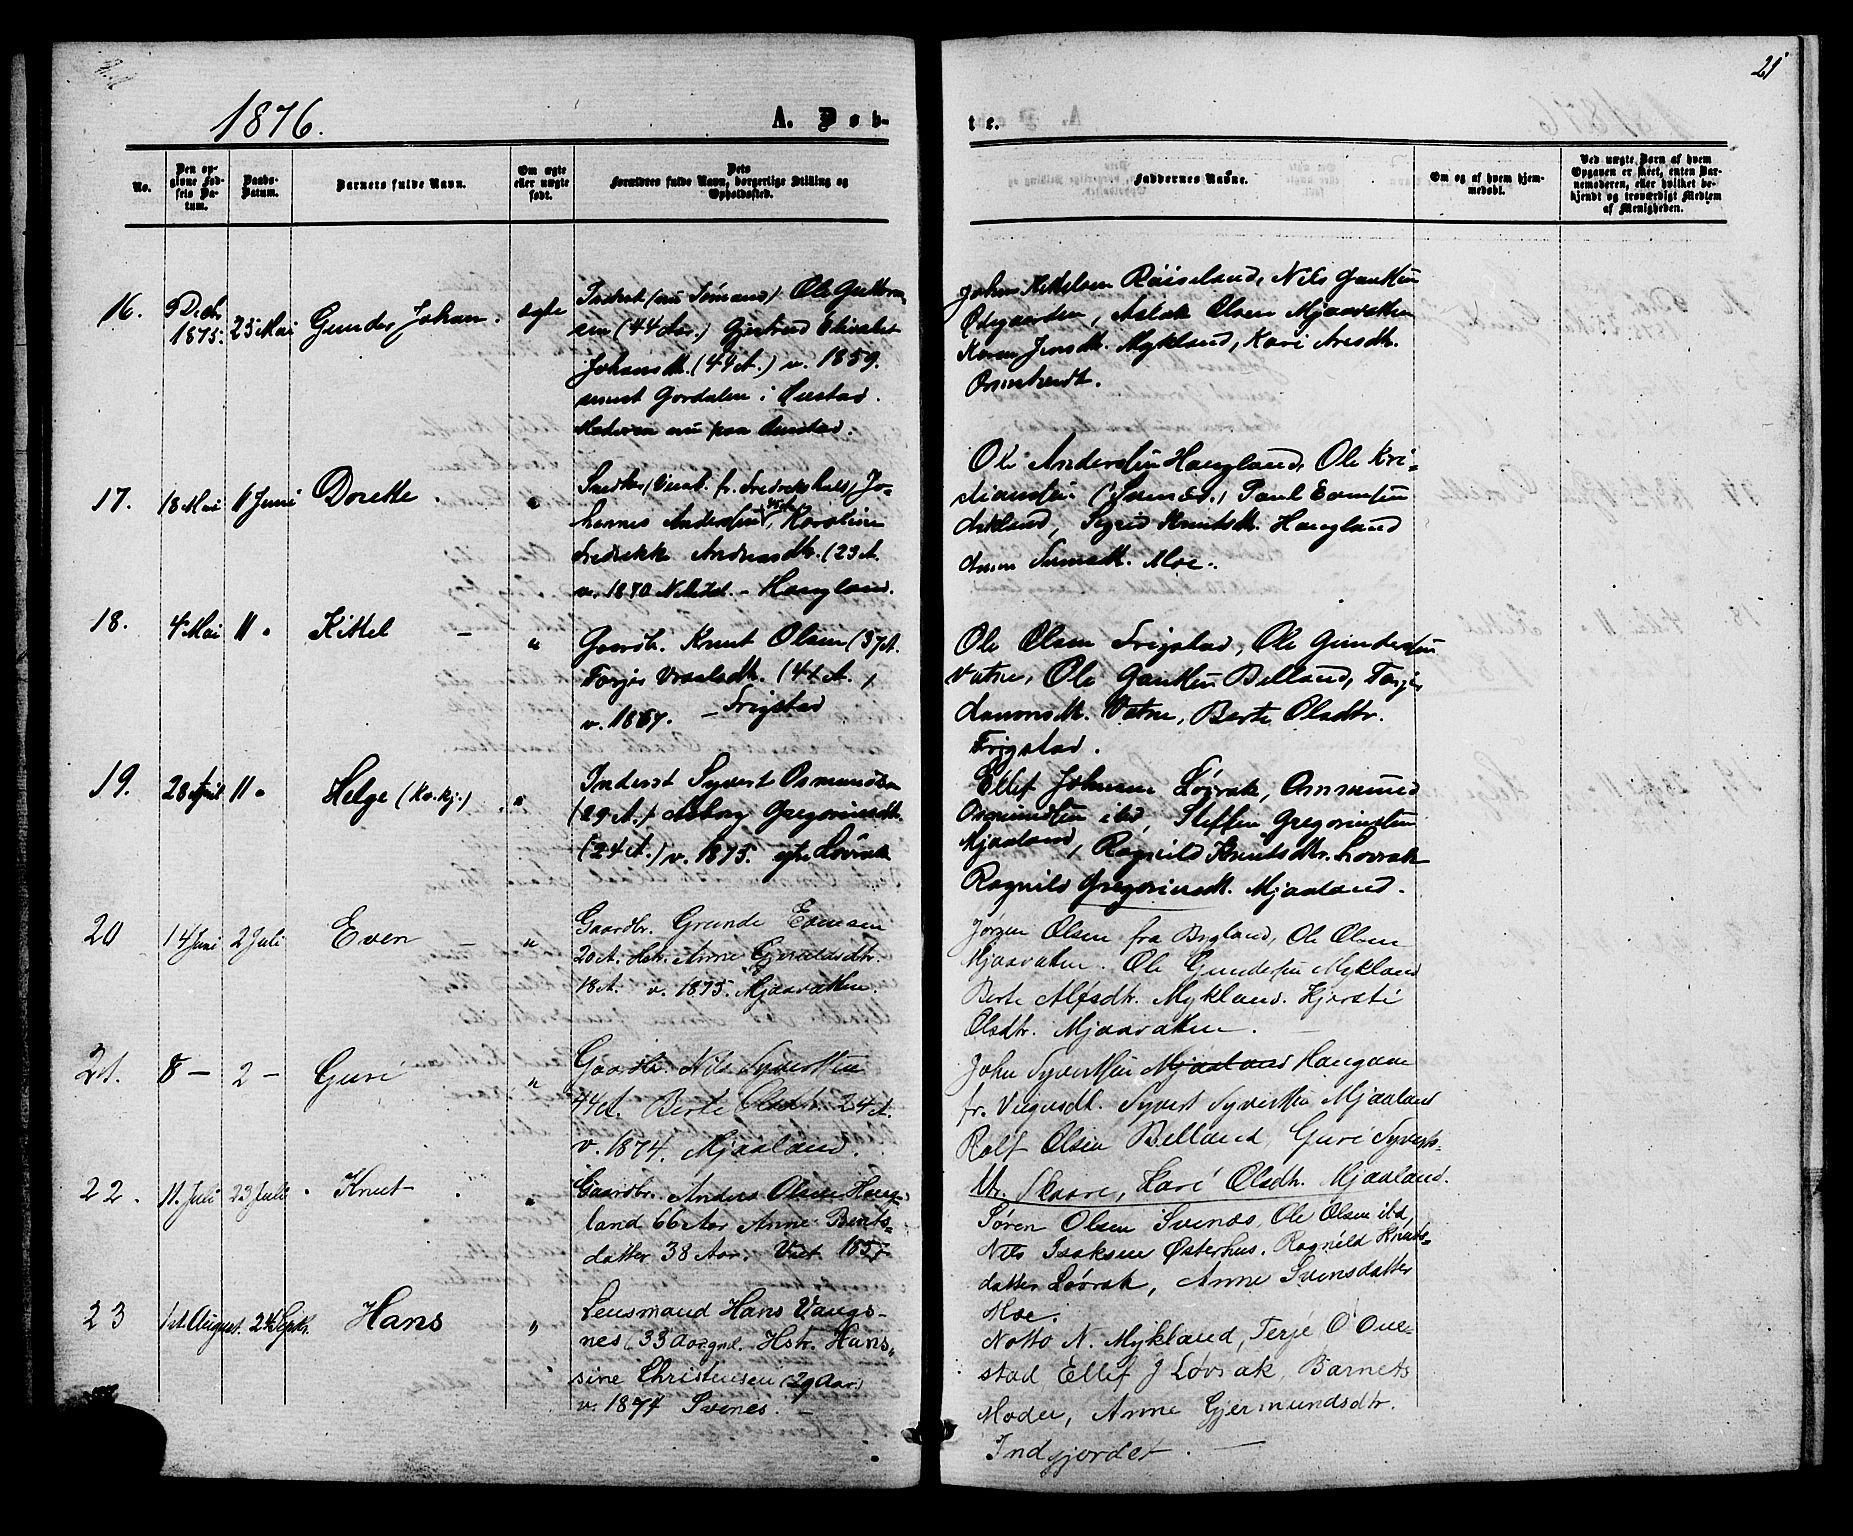 21
1876.
A. Døb-
te.
No.
Den op-
givne Fød-
sels Da-
tum.
Daabs-
Datum.
Barnets fulde Navn.
Om ægte
eller uægte
født.
Dets
Forældres fulde Navn, borgerlige Stilling og
Opholdssted.
Faddernes Navne.
Om og af hvem hjem-
medøbt.
Ved uægte Børn af hvem
Opgaven er skeet, enten Bar-
nemoderen, eller hvilket be-
kjendt og troværdigt Medlem
af Menigheden.
16. 9 Decbr. 1875. 25 Mai Gunder Johan. ægte
Inderst (nu Sømand) Ole Guttorm-
sen (44 Aar.) Gjertrud Elisabet
Johansdt. (44 A.) v. 1859.
Moderen nu paa
John Kittelsen Røiseland, Nils
Ødegaarden, Aslak Olsen Mjaavatten
Karen Jensdt. Mykland, Kari
17. 18 Mai 11 Juni Dorette "
Snedker
hannes Andersen Karoline
Fredrikke Andreasdtr. (29 A.
v. 1870 - Haugland.
Ole Andersen Haugland, Ole Kri-
stiansen (Svenes.) Paul Evensen
Askland, Sigrid Knutsdt. Haugland
Moe.
18. 4 Mai 11 " Kittel - "
Gaardbr. Knut Olsen (37 A.
Torjer (44 A.,
v. 1867. - Frigstad
Ole Olsen Frigstad, Ole Gundersen
Vatne, Ole Belland,
Vatne, Berte Olsdtr.
Frigstad.
19. 28 April 11 " Helge (Ko. kj.) "
Inderst Syvert Osmundsen
(29 A.) Aaborg Gregoriusdt.
(24 A.) v. 1875. Løvrak
Ellef Johnsen Løvrak, Ommund
Osmundsen ibd, Steffen Gregoriussen
Mjaaland, Ragnild Knutsdtr. Lovrak
Ragnild Gregoriusdt. Mjaaland.
20 14 Juni 2 Juli Even - "
Gaardbr. Grunde Evensen
20 A. Hstr. Anne
18 A. v. 1875. Mjaavatten.
Jørgen Olsen fra Bygland, Ole Olsen
Mjaavatten. Ole Gundersen Mykland
Berte Alfsdtr. Mykland. Kjersti
Olsdtr. Mjaavatten. -
21. 8 - 2 - Guri "
Gaardbr. Nils Syvertsen
44 A. Berte Olsdtr. 24 A.
v. 1874. Mjaaland.
John Syvertsen Mjaaland Haugaan
fr. Syvert Syvertsen Mjaaland
Rolf Olsen Belland, Guri Syverts-
dtr. Skaare, Kari Olsdtr. Mjaaland.
22. 11. Juli 23 Juli Knut "
Gaardbr. Anders Olsen Haug-
land 66 Aar Anne Bents-
datter 38 Aar. Viet 1857.
Søren Olsen Svenes, Ole Olsen ibd,
Nils Isaksen Østerhus. Ragnild Knuts-
datter Løvrak, Anne Svensdatter
Moe.
23 1st August. 24 Septbr. Hans "
Lensmand Hans Vangs-
nes (33 Aar gml. Hstr. Hans-
sine Christensen (29 Aar)
v. 1874 Svenes. -
Notto N. Mykland, Terje O Ove-
stad Ellef J Løvrak, Barnets
Moder, Anne Gjermundsdtr.
Indgjordet. -